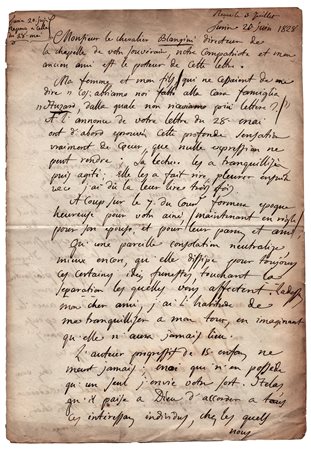 Reçue le 3. Juillet
Turin 26 juin 1828
28 mai
Monsieur le chevalier Blangini directeur de
la chapelle de votre souverain notre compatriote et mon
ancien ami est le porteur de cette lettre.
Ma femme, et mon fils qui ne cessaient de me
dire "Cos'abbiamo noi fatto alla Cara famiglia
Huzard, dalla quale non riceviamo più lettere?"
A l'annonce de votre lettre du 28 mai
ont d'abord éprouvé cette profonde sensation
vraiment de Cœur, que nulle expression ne
peut rendre; La lecture les a tranquillisés
puis agités: Elle les a fait rire, pleurer ensuite
j'ai dû la leur lire trois fois.
A coup sur le 7. du Cour. formera époque
heureuse pour votre ainé (maintenant en règle)
pour son épouse, et pour leurs parens et amis.
Qu'une pareille consolation neutralise
mieux encore, qu'elle dissipe pour toujours
ces certaines idées funestes, touchant la
séparation les quelles vous affectent.
mon cher ami, j'ai l'habitude de
me tranquilliser à mon tour, en imaginant
qu'elle n'aura jamais lieu.
L'auteur progressif de 15 enfans ne
meurt jamais; moi qui n'en possède
qu'un seul j'envie votre sort. Hélas
qu'il plaise à Dieu d'accorder à tous
ces intéressans individus, chez les quels
nous